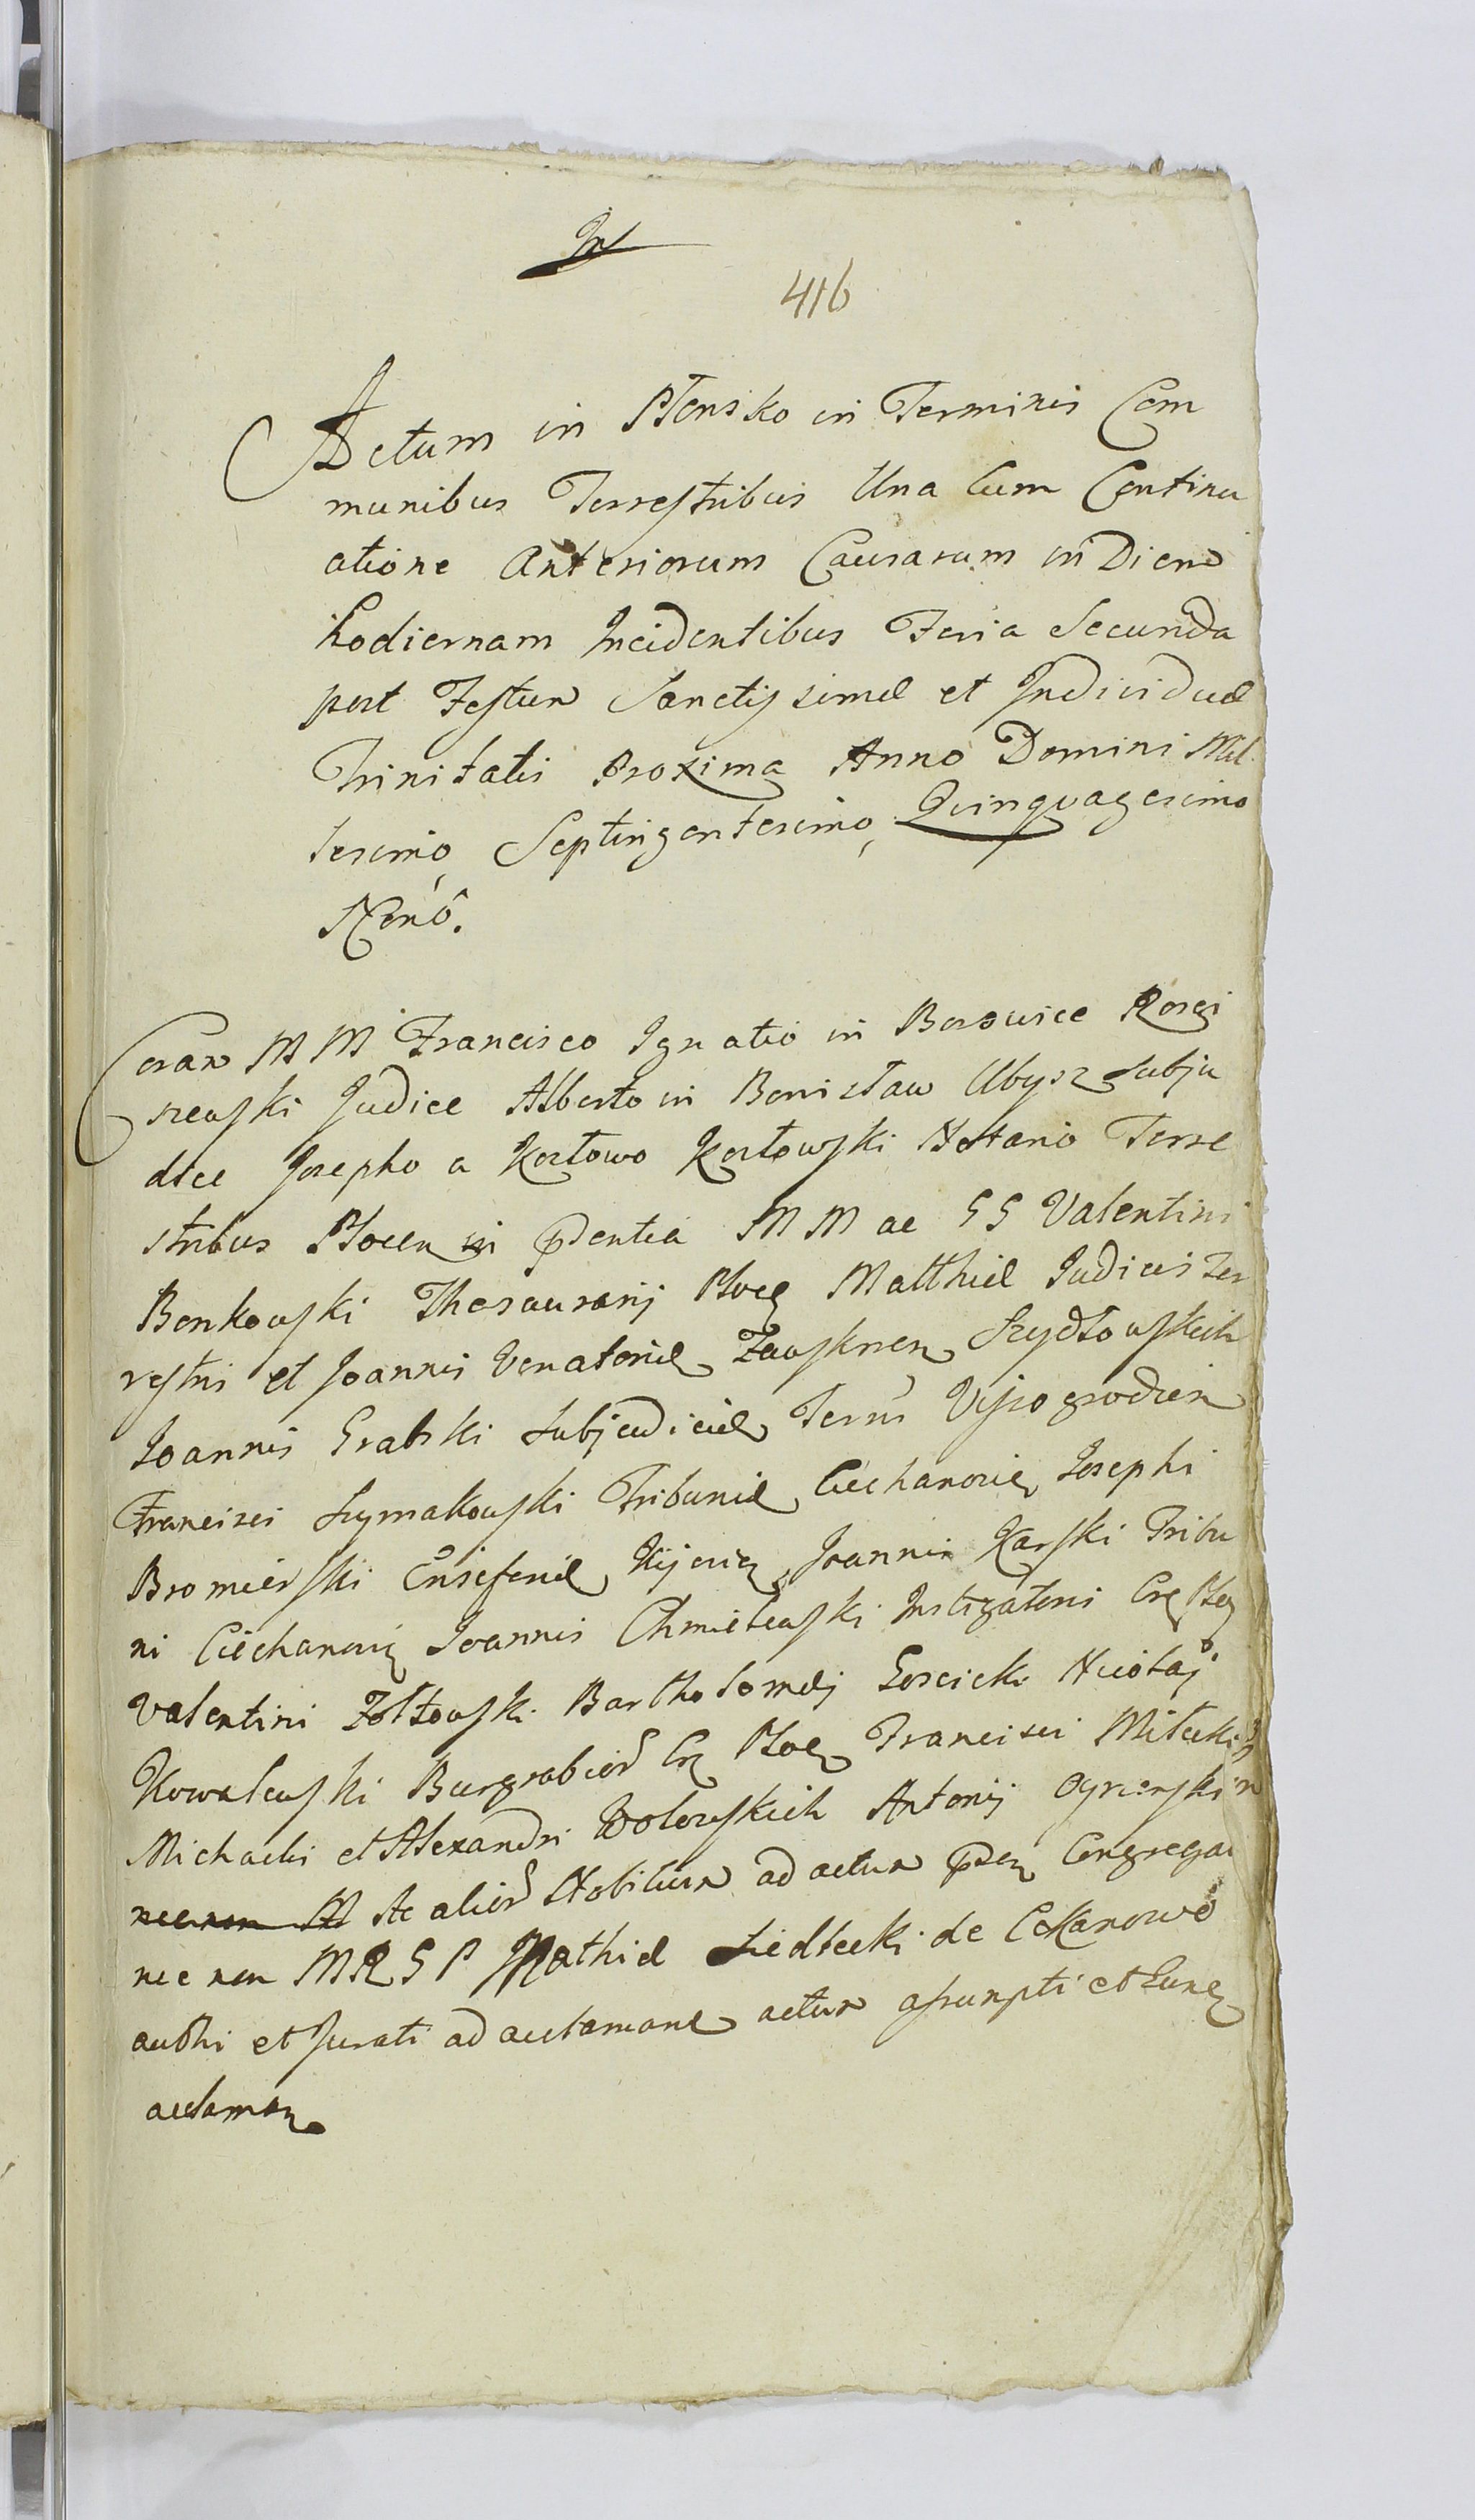 416
Actum in Płonsko in Terminis Com
munibus Terrestribus Una Cum Continu
atione Anteriorum Causarum in Diem
hodiernam Incidentibus Feria Secunda
post Festum Sanctissimæ et Individuæ
Trinitatis Proxima Anno Domini Mil
lesimo Septingentesimo, Quinquagesimo
Nonô.
Coram MM Francisco Ignatio in Borowice Rosci
szewski Judice Alberto in Bonisław Ubysz Subju
dice Josepho a Kozłowo Kozłowski Notario Terre
stribus Płocen in pdentia MM ac GG Valentini
Bonkowski Thesaurarij Płoc Matthiæ Judicis Ter
restris et Joannis Venatoris Zawskrnen Szydłowskich
Joannis Grabski Subjudicis Terris Vissogrodien
Francisci Szymakowski Tribuni Ciechanovien Josephi
Bromierski Ensiferi Kijovien Joannis Karski Tribu
ni Ciechanovien Joannis Chmielewski Instigatoris Crz Płoc
Valentini Zołtowski Bartholomæj Goscicki Nicolaj
Kowalewski Burgrabiorum Crz Płoc Francisci Miłecki
Michaelis et Alexandri Wolowskich Antonij Ogrzenski
nec non Ac aliorum Nobilium ad actum pden Congregan
nec non MRGP Mathiæ Siedlecki de Cekanowo
authi et Jurati ad acclamand actum assumpti et Tunc
acclaman